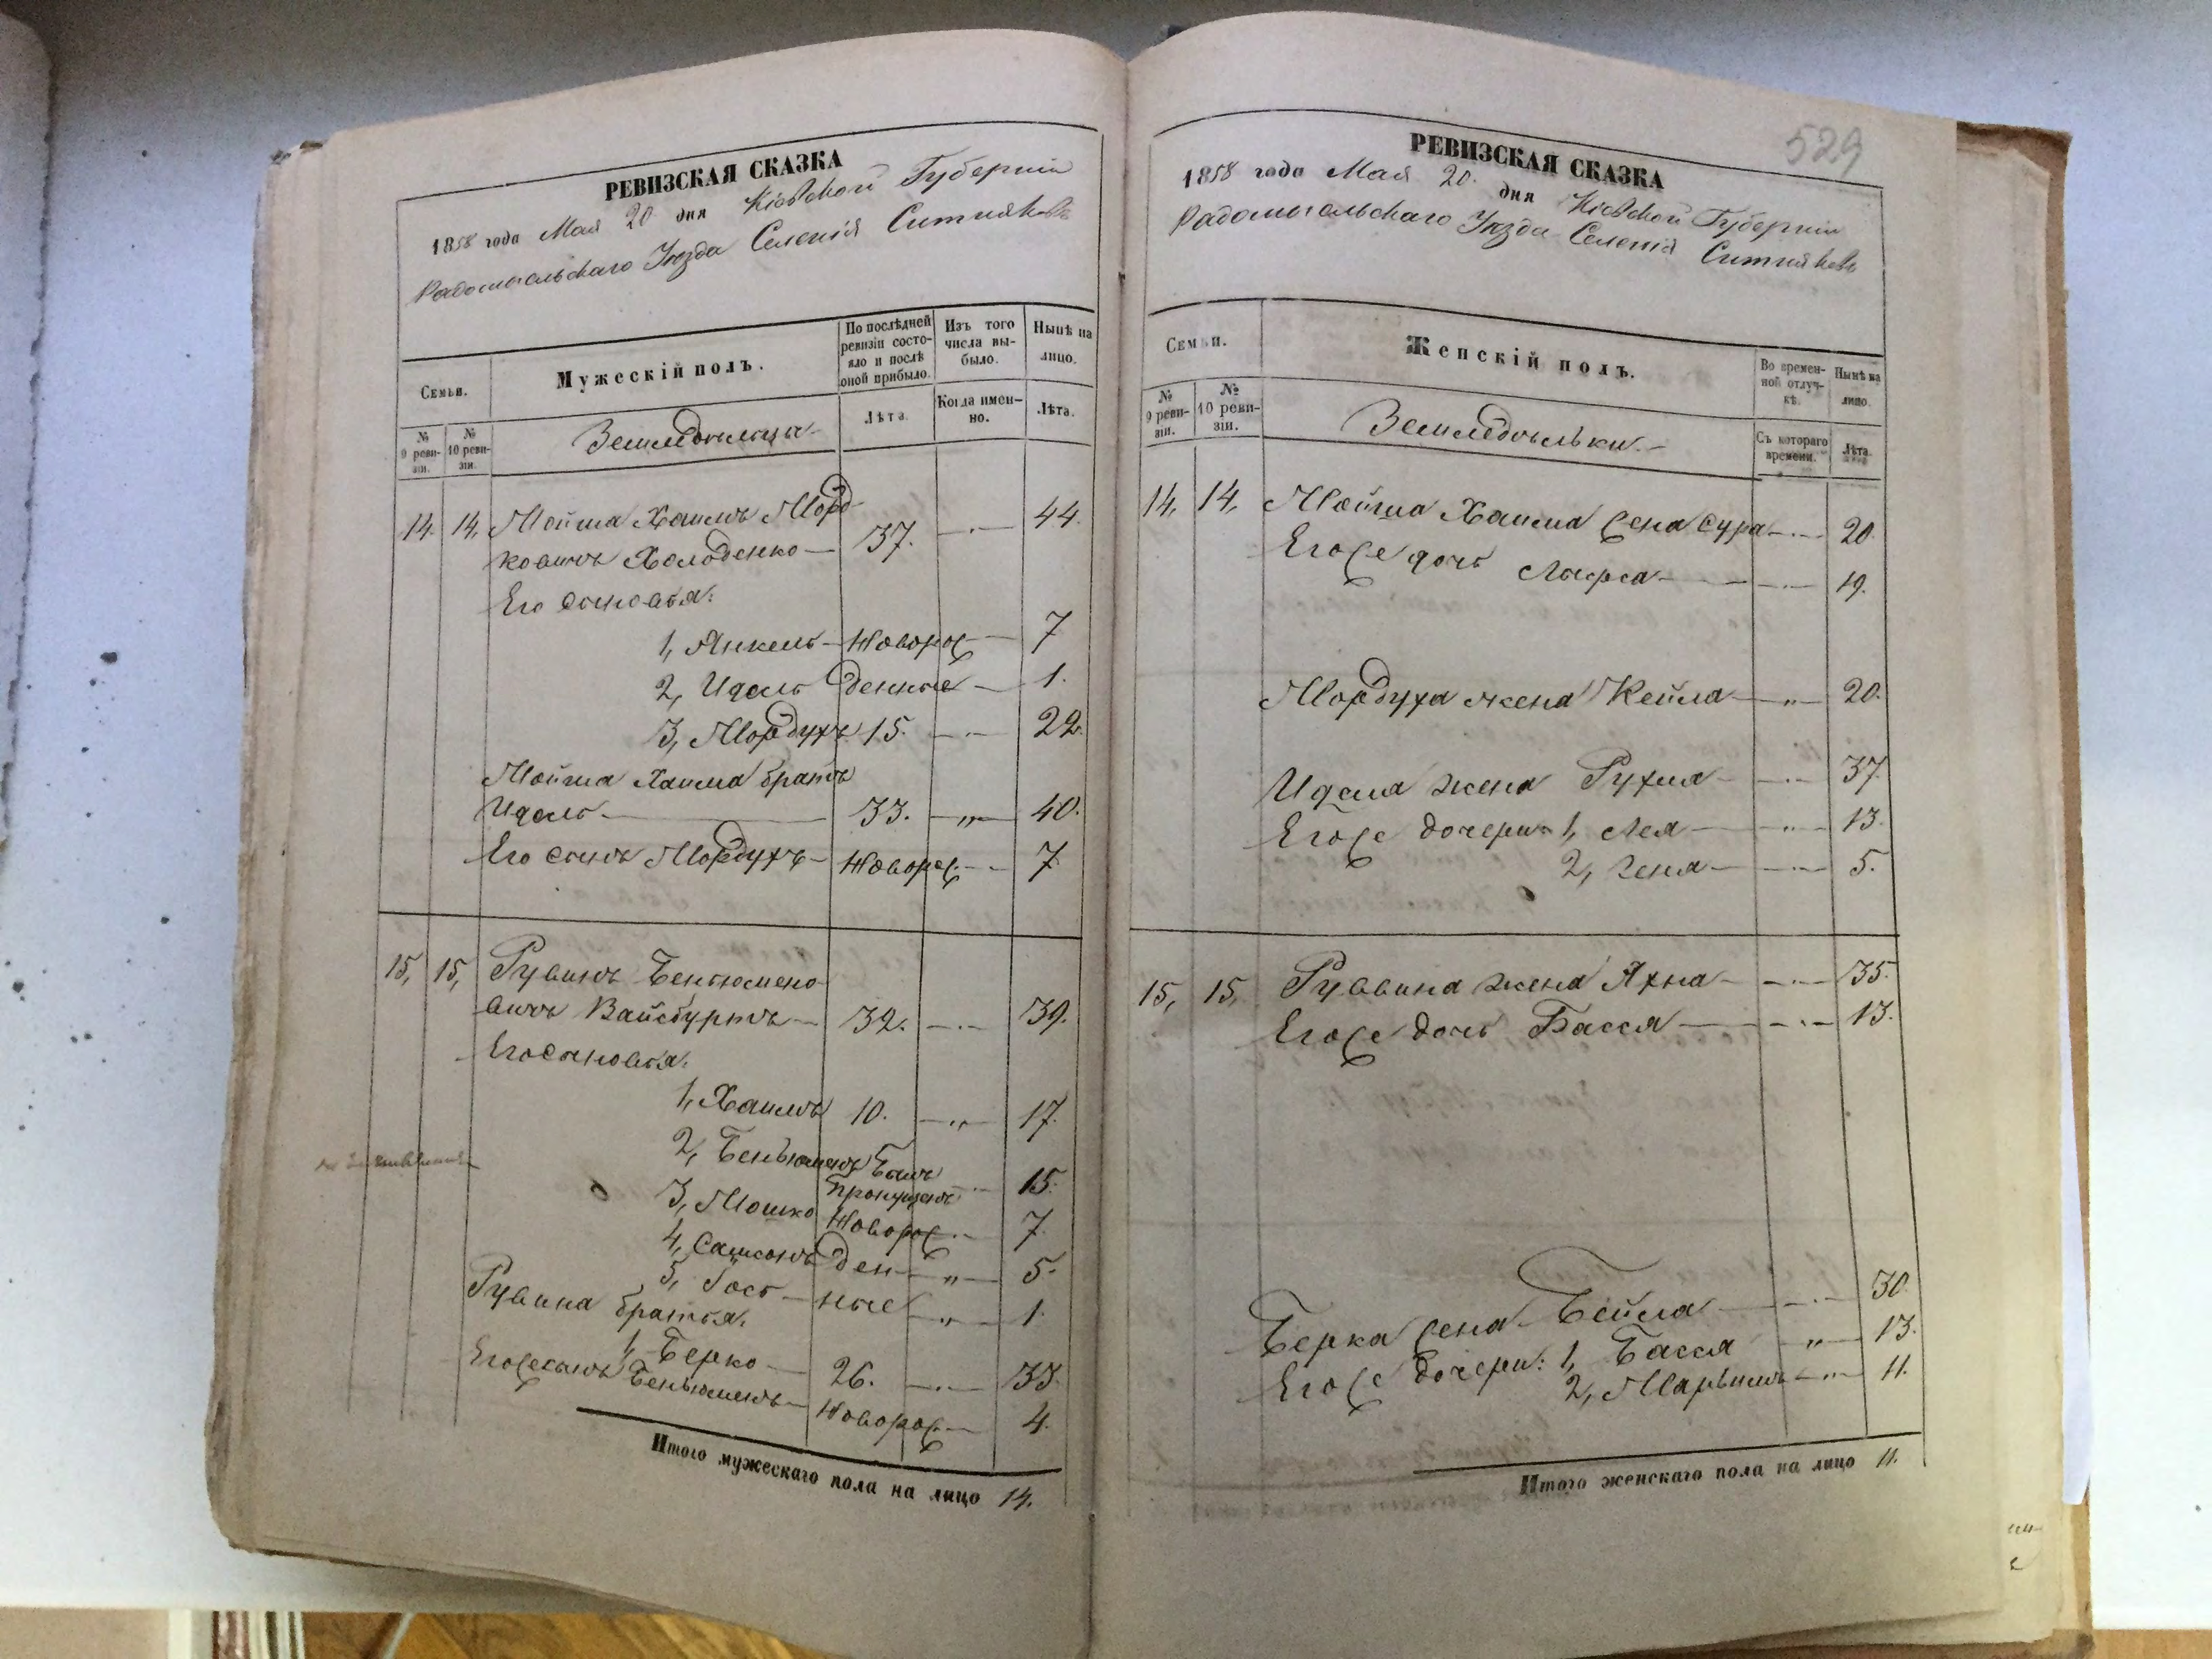 РЕВИЗСКАЯ СКАЗКА
1858 года Мая 20 дня Кіевской Губерніи
Радомысльскаго Уѣзда Селенія Ситняковъ
Семьи.
Мужескій полъ.
По послѣдней ревизіи состояло и послѣ оной прибыло.
Изъ того числа выбыло.
Нынѣ на лицо.
№ 9 ревизіи.
№ 10 ревизіи.
Земледѣльцы
Лѣта.
Когда именно.
Лѣта.
14. 14, Мойша Хаимъ Морд- 44.
ковичъ Холоденко — 37.
Его сыновья:
1, Янкель — Новорож — 7
2, Идель денные — 1.
3, Мордухъ 15. — 22.
Мойша Хаима братъ
Идель — 33. — „ — 40.
Его сынъ Мордухъ — Новорож. — 7
15, 15, Рувинъ Беньюмено-
вичъ Вайсбуртъ — 32. — 39.
Его сыновья:
1, Хаимъ 10. — „ 17.
2, Беньюменъ Былъ пропущенъ 15.
3, Мошко Новорож. — 7.
4, Самсонъ ден — „ — 5.
5, Іось — ные — „ — 1.
Рувина братья.
1, Берко — 26. — 33.
Егоже сынъ Беньюменъ — Новорож. — 4.
Итого мужескаго пола на лицо 14.
529
РЕВИЗСКАЯ СКАЗКА
1858 года Мая 20. дня Кіевской Губерніи
Радомысльскаго Уѣзда Селенія Ситняковъ
Семьи.
Женскій полъ.
Во временной отлучкѣ.
Нынѣ на лицо.
№ 9 ревизіи.
№ 10 ревизіи.
Земледѣльки. —
Съ котораго времени.
Лѣта.
14, 14, Мойша Хаима жена Сура — 20.
Егоже дочь — 19.
Мордуха жена Кейла — „ — 20.
Иделя жена Рухля — 37.
Егоже дочери: 1, Лея — „ — 13.
2, Геня — 5.
15, 15, Руввина жена Яхна — 35.
Егоже дочь Бася — 13.
Берка жена Бейла — 30.
Егоже дочери: 1, Бася „ — 13.
2, Марьимъ — 11.
Итого женскаго пола на лицо 11.